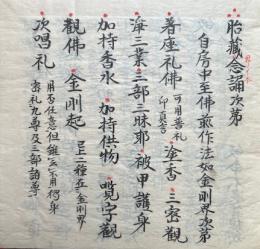 胎藏念誦次第
自房中至佛前作法如金剛界次第
着座礼佛 可用普礼印真言 塗香 三密觀
淨三業 三部三昧耶 被甲護身
加持香水 加持供物 覽字觀
觀佛 金剛起 已上二種在金剛界
次唱礼 用否任意但雖不用猶早
宗礼九尊及三部諸尊